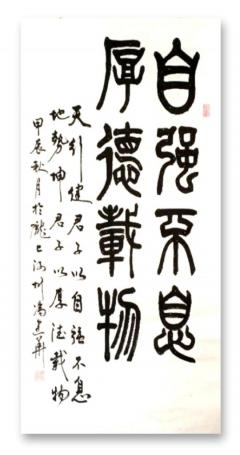 自强不息
厚德載物
天行健君子以自强不息
地勢坤君子以厚德載物
甲辰秋月於隴上河州